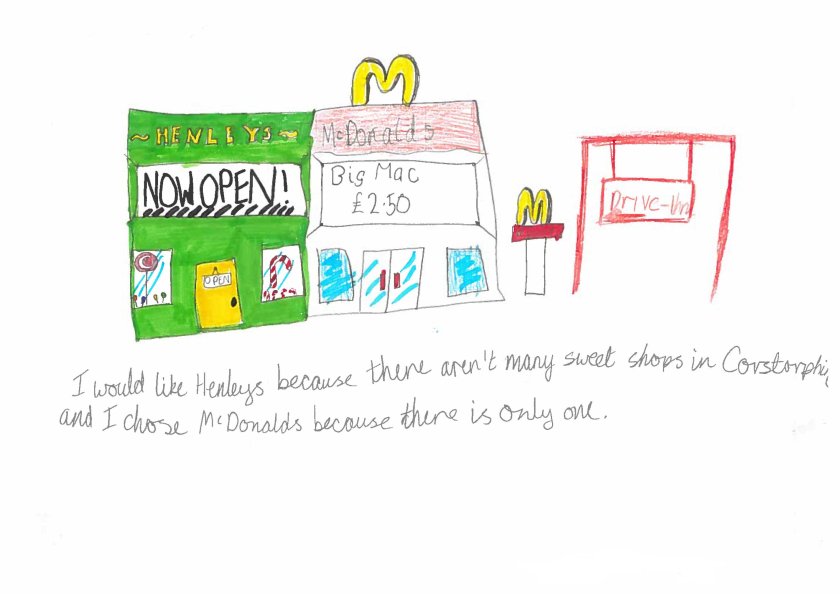 ~ HENLEYS ~
McDonalds
NOW OPEN!
Big Mac
£2.50
OPEN
Drive-thru
I would like Henleys because there aren't many sweet shops in
and I chose McDonalds because there is only one.